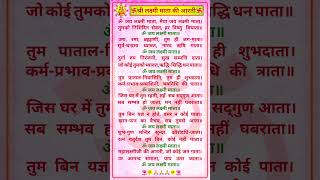 ॐश्री लक्ष्मी माता की आरतीॐ
ॐ जय लक्ष्मी माता, मैया जय लक्ष्मी माता।
तुमको निशिदिन सेवत, हर विष्णु विधाता॥
ॐ जय लक्ष्मी माता॥
उमा, रमा, ब्रह्माणी, तुम ही जग-माता।
सूर्य-चन्द्रमा ध्यावत, नारद ऋषि गाता॥
ॐ जय लक्ष्मी माता॥
दुर्गा रूप निरंजनी, सुख सम्पत्ति दाता।
जो कोई तुमको ध्यावत, ऋद्धि-सिद्धि धन पाता॥
ॐ जय लक्ष्मी माता॥
तुम पाताल-निवासिनि, तुम ही शुभदाता।
कर्म-प्रभाव-प्रकाशिनी, भवनिधि की त्राता॥
ॐ जय लक्ष्मी माता॥
जिस घर में तुम रहतीं, सब सद्गुण आता।
सब सम्भव हो जाता, मन नहीं घबराता॥
ॐ जय लक्ष्मी माता॥
तुम बिन यज्ञ न होते, वस्त्र न कोई पाता।
खान-पान का वैभव, सब तुमसे आता॥
ॐ जय लक्ष्मी माता॥
शुभ-गुण मन्दिर सुन्दर, क्षीरोदधि-जाता।
रत्न चतुर्दश तुम बिन, कोई नहीं पाता॥
ॐ जय लक्ष्मी माता॥
महालक्ष्मीजी की आरती, जो कोई जन गाता।
उर आनन्द समाता, पाप उतर जाता॥
ॐ जय लक्ष्मी माता॥